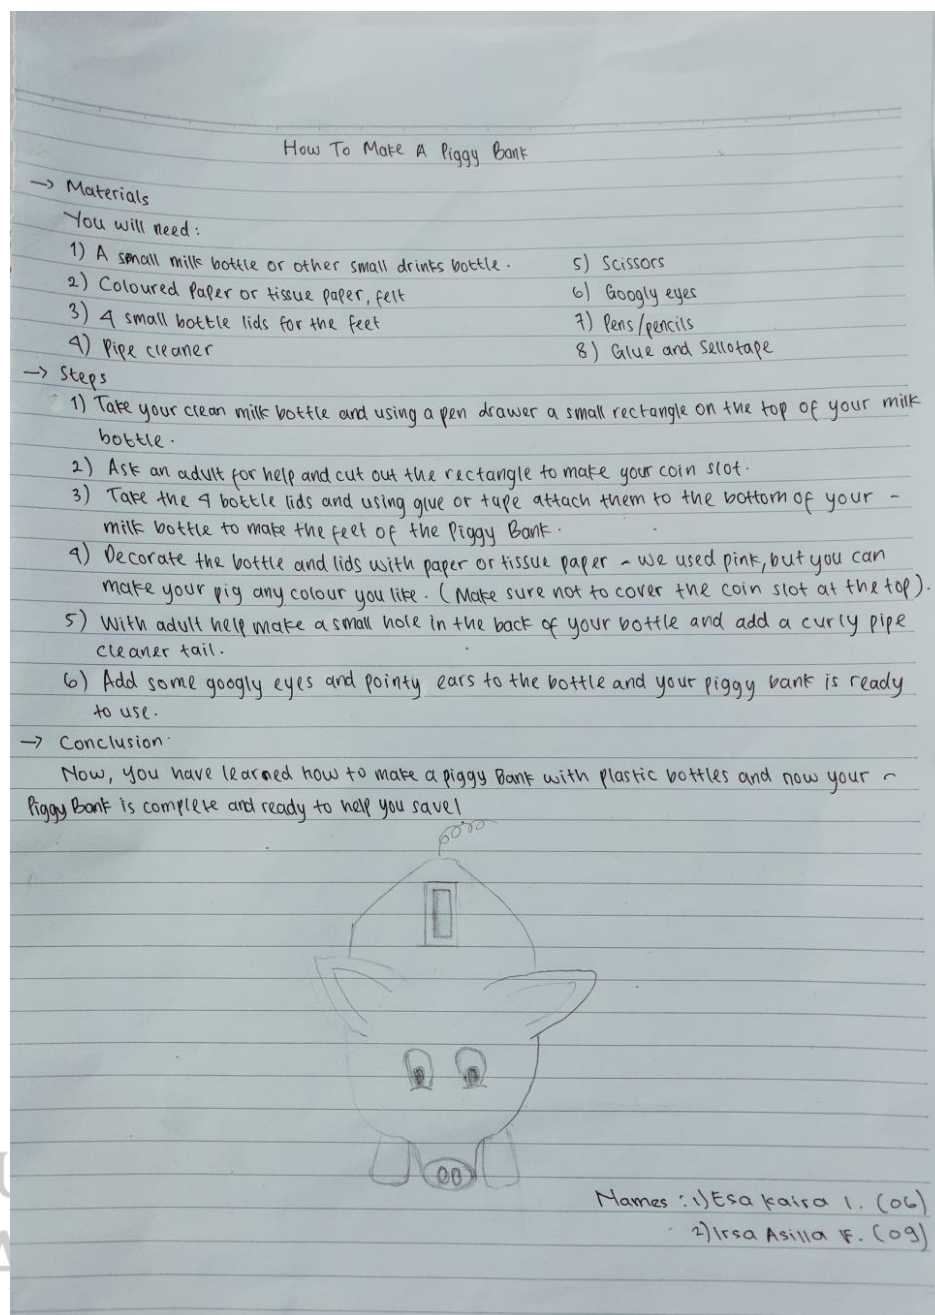 How To Make A Piggy Bank
→ Materials
You will need :
1) A small milk bottle or other small drinks bottle.
2) Coloured Paper or tissue paper, felt
3) 4 small bottle lids for the feet
4) Pipe cleaner
5) Scissors
6) Googly eyes
7) Pens/pencils
8) Glue and Sellotape
→ Steps
1) Take your clean milk bottle and using a pen drawer a small rectangle on the top of your milk
bottle.
2) Ask an adult for help and cut out the rectangle to make your coin slot.
3) Take the 4 bottle lids and using glue or tape attach them to the bottom of your -
milk bottle to make the feet of the Piggy Bank.
4) Decorate the bottle and lids with paper or tissue paper - we used pink, but you can
make your pig any colour you like. (Make sure not to cover the coin slot at the top).
5) With adult help make a small hole in the back of your bottle and add a curly pipe
cleaner tail.
6) Add some googly eyes and pointy ears to the bottle and your piggy bank is ready
to use.
→ Conclusion.
Now, you have learned how to make a piggy Bank with plastic bottles and now your -
Piggy Bank is complete and ready to help you save!
Names : 1) Esa Kaira I. (06)
2) Irsa Asilla F. (09)